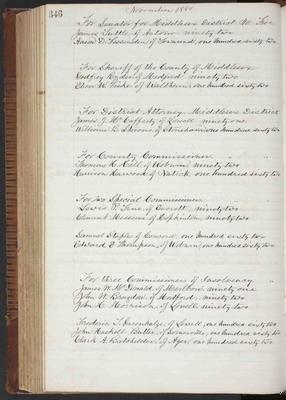 346
November 1889
For Senator for Middlesex District No Five
James Tuttle, of Acton, ninety two
, of , one hundred sixty two
For Sheriff of the County of Middlesex
, of Medford, ninety two
, of Waltham, one hundred sixty two
For District Attorney Middlesex District
James J. McCafferty, of Lowell, ninety one
William B. Stevens, of Stoneham, one hundred sixty two
For County Commissioner
Thomas H. Hill, of Woburn, ninety two
Harrison Harwood, of Natick, one hundred sixty two
For two Special Commissioners
Lewis P. True, of Everett, ninety two
Clement Meserve, of Hopkinton, ninety two
Samuel Staples, of Concord, one hundred sixty two
Edward E. Thompson, of Woburn, one hundred sixty two
For three Commissioners of Insolvency
James W. McDonald, of Marlboro, ninety one
John W. , of Medford, ninety two
John C. Morrison, of Lowell, ninety two
Frederic T. Greenhalge, of Lowell, one hundred sixty two
John Haskell Butler, of Somerville, one hundred sixty two
A. Batchelder, of Ayer, one hundred sixty two